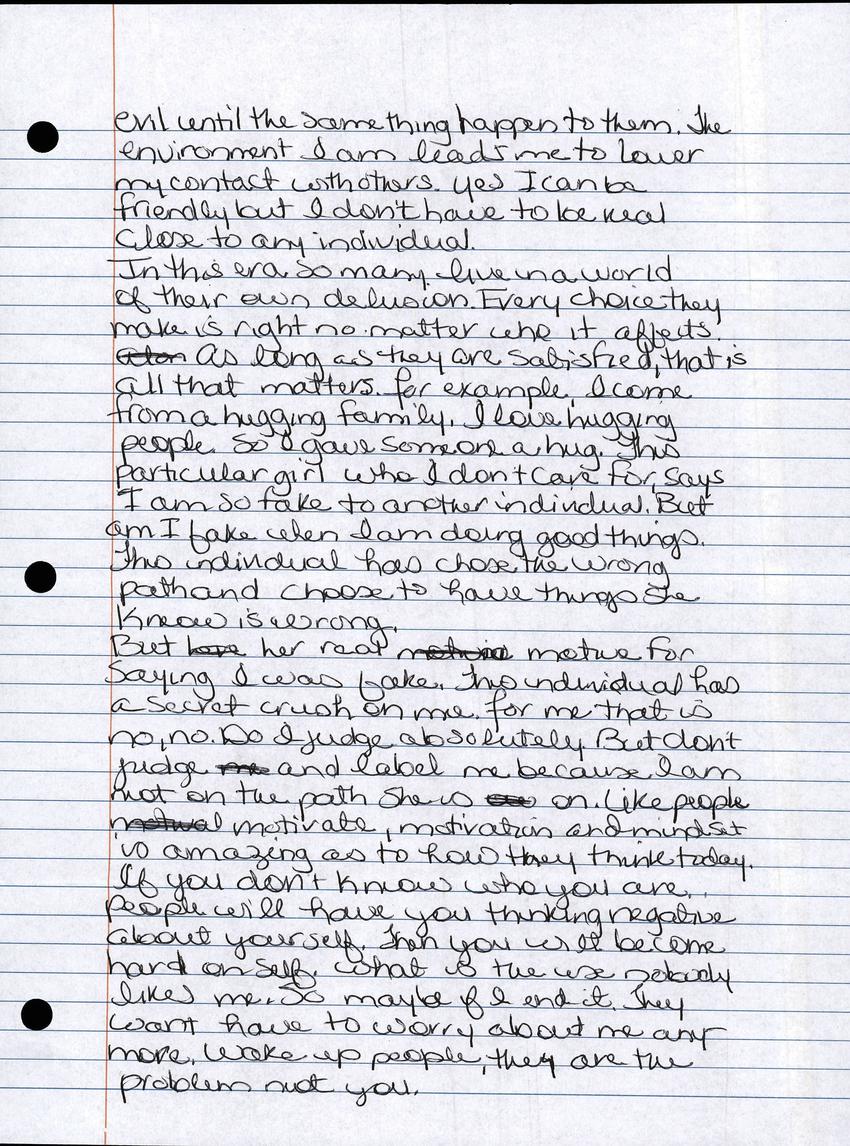 evil until the something happen to them. The
environment I am leads me to lower
my contact with others. Yes I can be
friendly but I don't have to be real
close to any individual.
In this era so many live in a world
of their own delusion. Every choice they
make is right no matter who it affects.
As long as they are satisfied, that is
all that matters. For example, I come
from a hugging family. I love hugging
people. So I gave someone a hug. This
particular girl who I don't care for, says
I am so fake to another individual. But
am I fake when I am doing good things.
This individual has chose the wrong
path and choose to have things she
know is wrong.
But her real motive for
saying I was fake. This individual has
a secret crush on me. For me that is
no, no. Do I judge absolutely. But don't
judge and label me because I am
not on the path she is on. Like people
motivate, motivation and mindset
is amazing as to how they think today.
If you don't know who you are,
people will have you thinking negative
about yourself. Then you will become
hard on self. What is the use nobody
likes me. So maybe if I end it. They
wont have to worry about me any
more. Wake up people, they are the
problem not you.